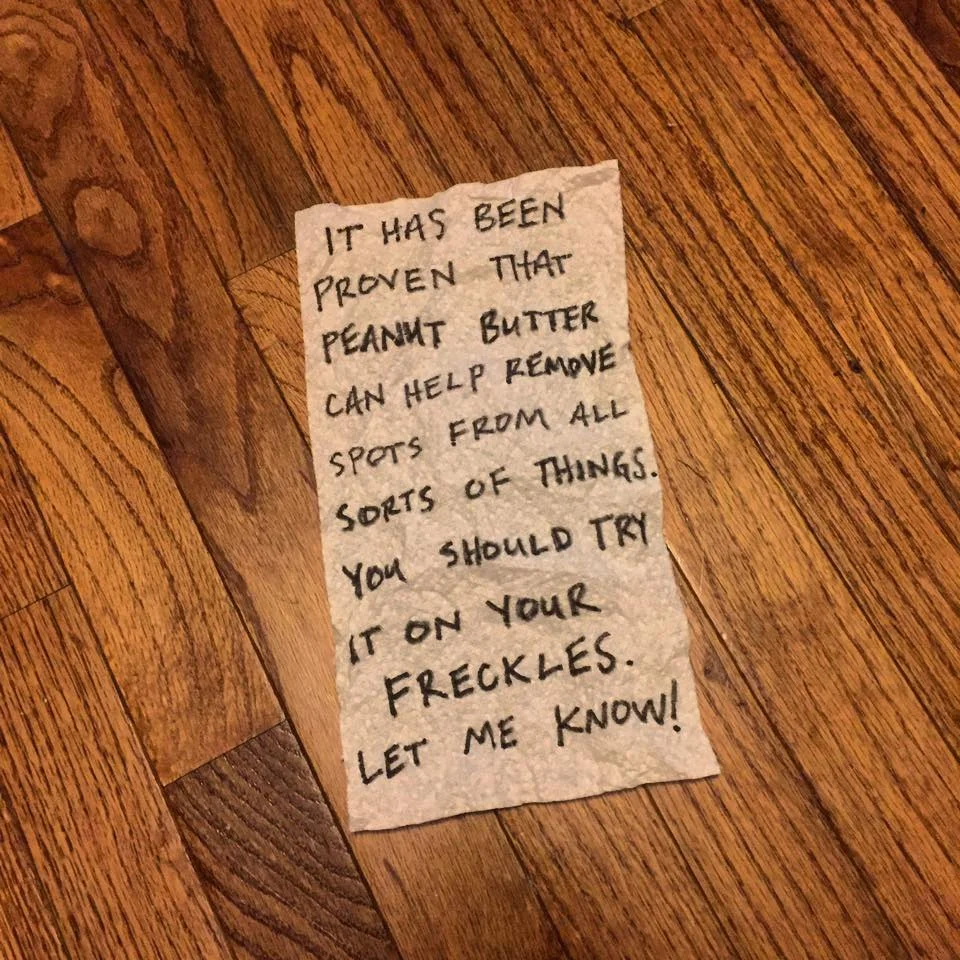 IT HAS BEEN
PROVEN THAT
PEANUT BUTTER
CAN HELP REMOVE
SPOTS FROM ALL
SORTS OF THINGS.
YOU SHOULD TRY
IT ON YOUR
FRECKLES.
LET ME KNOW!